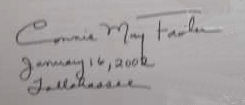 Connie May Fowler
January 16, 2002
Tallahassee